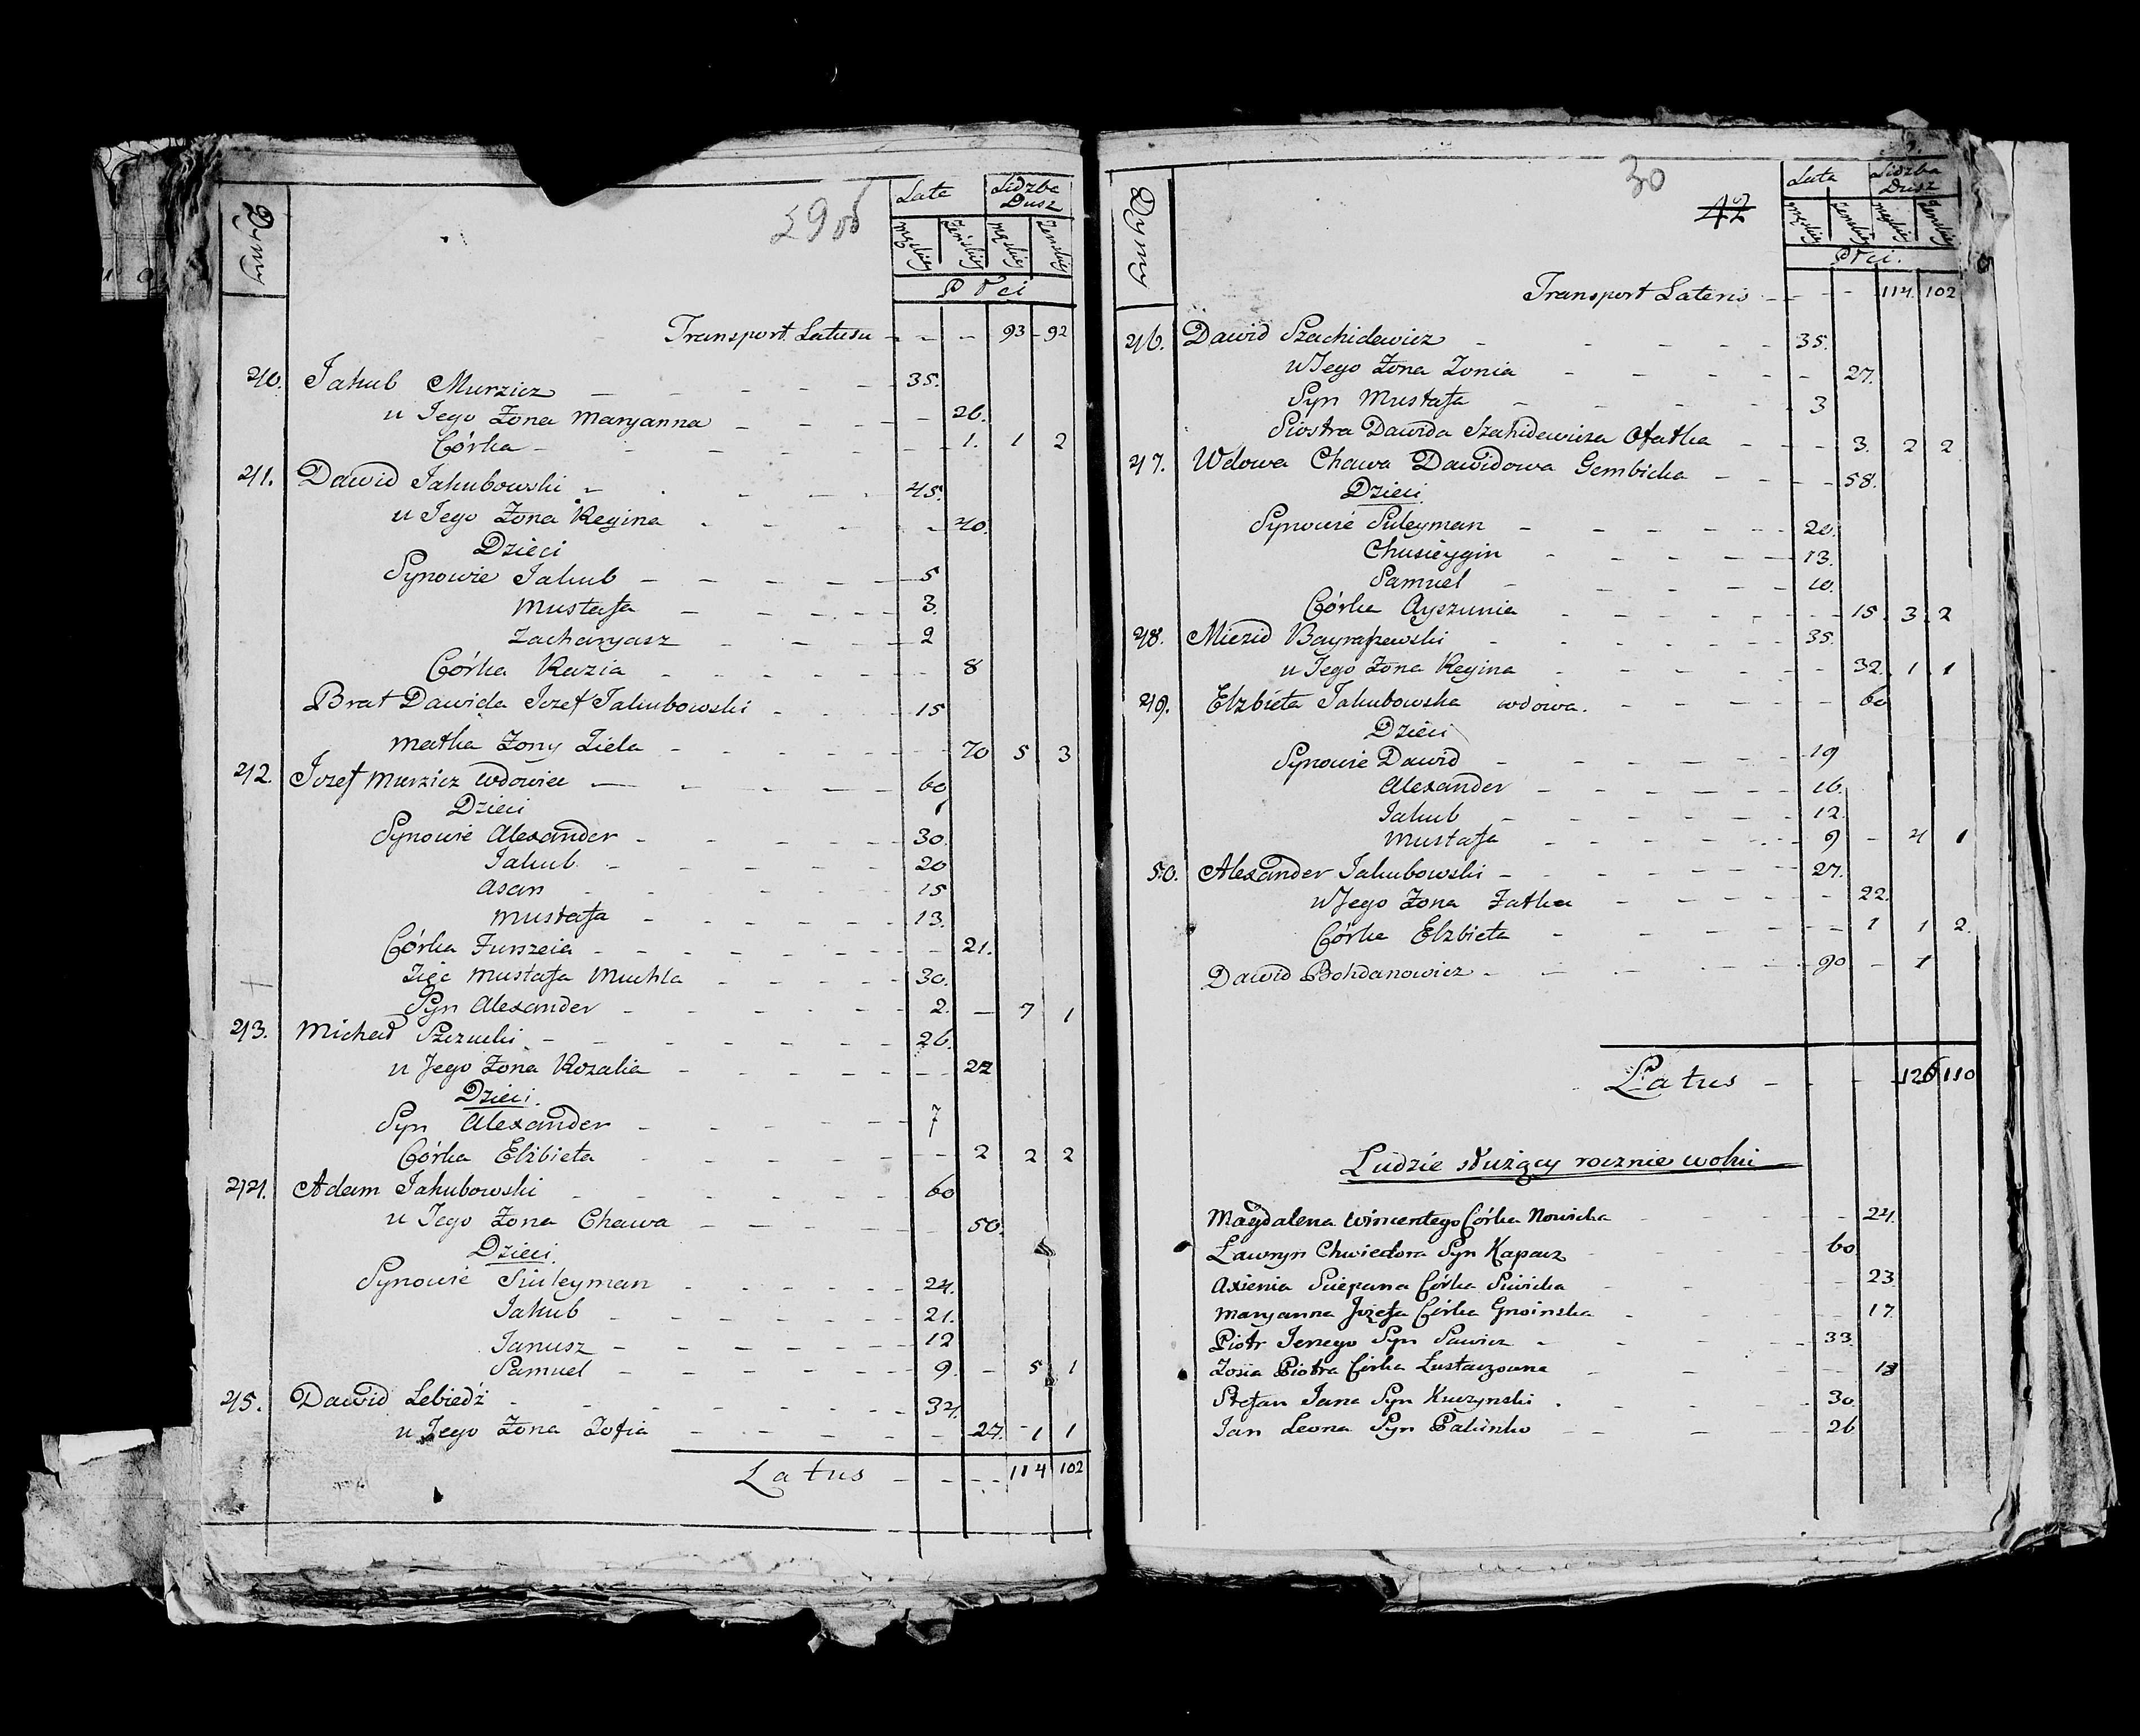 29об
Dymy
Lata
Liczba Dusz
męskiej
żeńskiej
męskiej
żeńskiej
Płci
Transport Latusu - - - 93 - 92
40. Jakub Murzicz - - - 35.
u Jego Żona Maryanna - - - 26.
Córka - - - 1. 1 2
41. Dawid Jakubowski - - - 45.
u Jego Żona Regina - - - 40.
Dzieci
Synowie Jakub - - - 5
Mustafa - - - 3.
Zacharyasz - - - 2
Córka Rozia - - - 8
Brat Dawida Jozef Jakubowski - - - 15
Matka Żony Ziela - - - 70 5 3
42. Jozef Murzicz wdowiec - - - 60
Dzieci
Synowie Alexander - - - 30.
Jakub - - - 20
Asan - - - 15
Mustafa - - - 13.
Córka Furszeia - - - 21.
Zięć Mustafa Muchla - - - 30.
Syn Alexander - - - 2. - 7 1
43. Michał Szczucki - - - 26.
u Jego Żona Rozalia - - - 22
Dzieci.
Syn Alexander - - - 7
Córka Elżbieta - - - 2 2 2
44. Adam Jakubowski - - - 60
u Jego Żona Chawa - - - 50.
Dzieci.
Synowie Suleyman - - - 24.
Jakub - - - 21.
Janusz - - - 12
Samuel - - - 9. - 5 1
45. Dawid Lebiedź - - - 34.
u Jego Żona Zofia - - - 27. - 1 1
Latus - - - 114 102
30
42
Dymy
Lata
Liczba Dusz
męskiej
żeńskiej
męskiej
żeńskiej
Płci.
Transport Lateris - - - 114. 102
46. Dawid Szachidewicz - - - 35.
u Jego Żona Zonia - - - 27.
Syn Mustafa - - - 3
Siostra Dawida Szahidewicza Ofatka - - - 3. 2 2
47. Wdowa Chawa Dawidowa Gembicka - - - 58.
Dzieci
Synowie Suleyman - - - 20.
Chusieygin - - - 13.
Samuel - - - 10.
Córka Ayszunia - - - 15. 3. 2
48. Miezid Bayraszewski - - - 35.
u Jego Żona Regina - - - 32. 1 1
49. Elżbieta Jakubowska wdowa. - - - 60
Dzieci
Synowie Dawid - - - 19
Alexander - - - 16.
Jakub - - - 12.
Mustafa - - - 9 - 4 1
50. Alexander Jakubowski - - - 27.
u Jego Żona Fatka - - - 22.
Córka Elżbieta - - - 1 1 2.
Dawid Bohdanowicz - - - 90 - 1
Latus - - - 126 110
Ludzie służący rocznie wolni
Magdalena Wincentego Córka Nowicka - - - 24.
Ławryn Chwiedora Syn Kapacz - - - 60
Axienia Sciepana Córka Siwicka - - - 23.
Maryanna Jozefa Córka Gnoinska - - - 17.
Piotr Jerzego Syn Sawicz - - - 33.
Zosia Piotra Córka Łustaczowna - - - 18
Stefan Jana Syn Kuczynski - - - 30.
Jan Leona Syn Palunko - - - 26